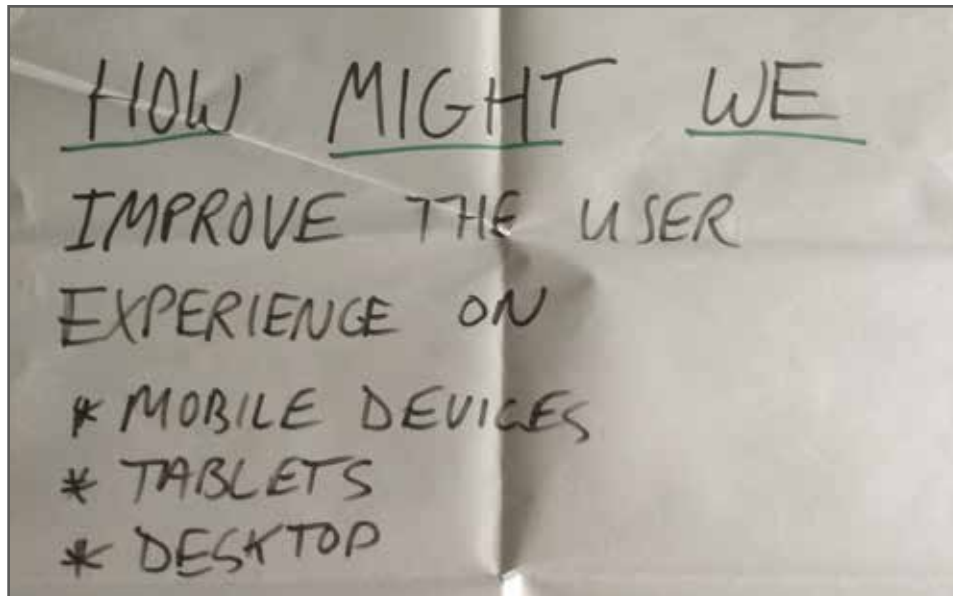 HOW MIGHT WE
IMPROVE THE USER
EXPERIENCE ON
* MOBILE DEVICES
* TABLETS
* DESKTOP